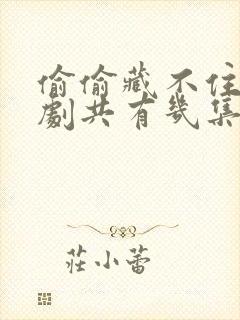 偷偷藏不住
劇共有幾集
莊小蕾